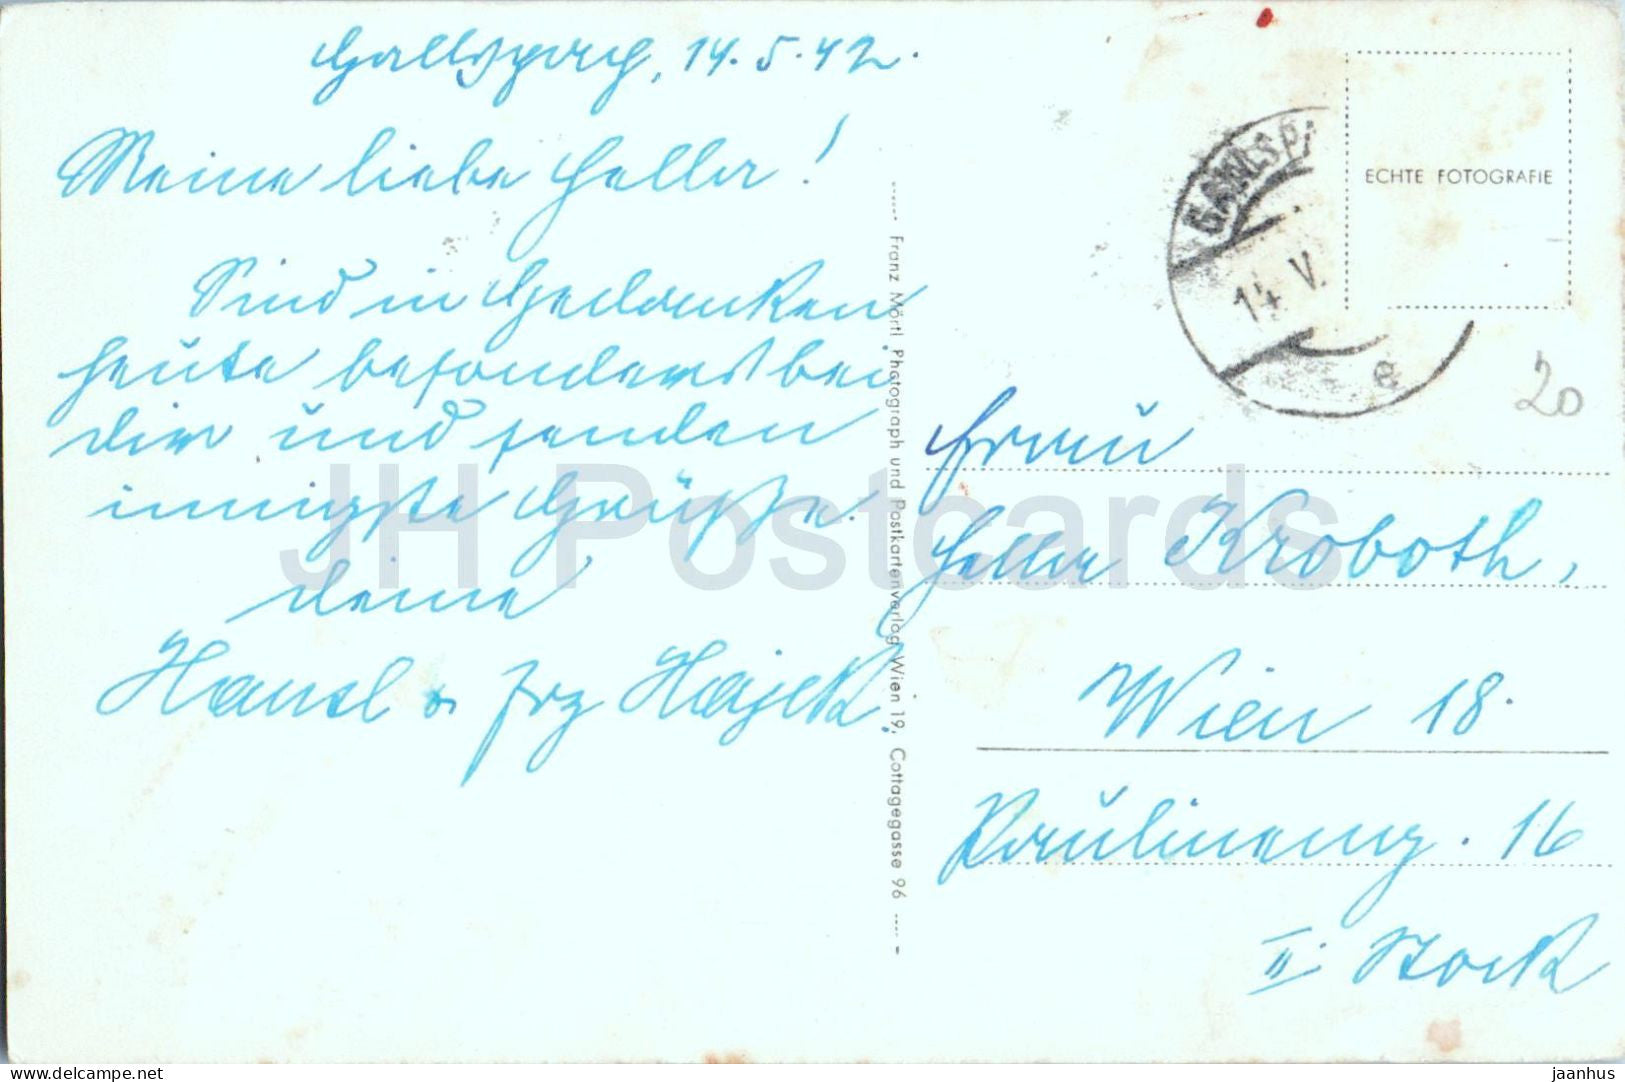 Gallspach, 14.5.42.
Meine liebe Hella!
Sind in Gedanken
heute besonders bei
dir und senden
innigste Grüße.
deine
Hansl & Frz Hajek.
Franz Mörtl Photograph und Postkartenverlag Wien 19, Cottagegasse 96
ECHTE FOTOGRAFIE
14. V.
e
20
Frau
Hella Kroboth,
Wien 18.
Paulineng. 16
II. Stock
JH Postcards
delcampe.net
jaanhus